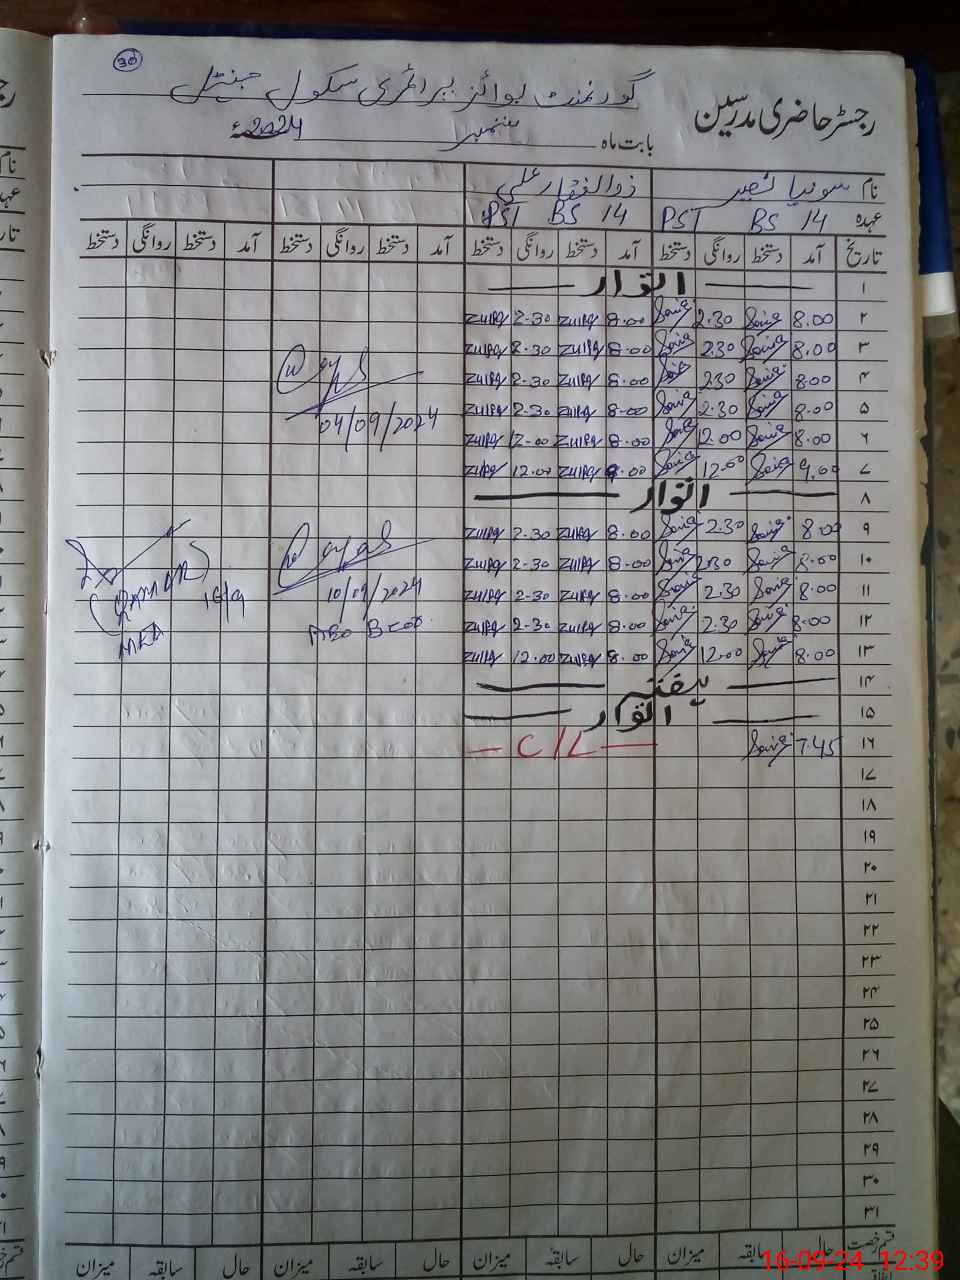 30
گورنمنٹ بوائز پرائمری سکول
رجسٹر حاضری مدرسین
بابت ماہ ستمبر 2024ء
نام سونیا نصیر ذوالفقار علی
عہدہ PST BS 14 PST BS 14
تاریخ آمد دستخط روانگی دستخط آمد دستخط روانگی دستخط آمد دستخط روانگی دستخط آمد دستخط روانگی دستخط
۱ اتوار
۲ 8.00 Sonia 2.30 Sonia 8.00 Zulfiq 2-30 Zulfiq
۳ 8.00 Sonia 2.30 Sonia 8.00 Zulfiq 2.30 Zulfiq
۴ 8.00 Sonia 2.30 Sonia 8.00 Zulfiq 2-30 Zulfiq
۵ 8.00 Sonia 2.30 Sonia 8.00 Zulfiq 2-30 Zulfiq
04/09/2024
۶ 8.00 Sonia 12.00 Sonia 8.00 Zulfiq 12.00 Zulfiq
۷ 9.00 Sonia 12.00 Sonia 8.00 Zulfiq 12.00 Zulfiq
۸ اتوار
۹ 8.00 Sonia 2.30 Sonia 8.00 Zulfiq 2-30 Zulfiq
۱۰ 8.00 Sonia 2.30 Sonia 8.00 Zulfiq 2-30 Zulfiq
۱۱ 8.00 Sonia 2.30 Sonia 8.00 Zulfiq 2-30 Zulfiq 10/09/2024 16/9
۱۲ 8.00 Sonia 2.30 Sonia 8.00 Zulfiq 2-30 Zulfiq AEO MEA
۱۳ 8.00 Sonia 12.00 Sonia 8.00 Zulfiq 12.00 Zulfiq
۱۴ ہفتہ
۱۵ اتوار
۱۶ 7.45 Sonia C/L
۱۷
۱۸
۱۹
۲۰
۲۱
۲۲
۲۳
۲۴
۲۵
۲۶
۲۷
۲۸
۲۹
۳۰
۳۱
قسم رخصت حال سابقہ میزان حال سابقہ میزان حال سابقہ میزان حال سابقہ میزان
16-09-24 12:39